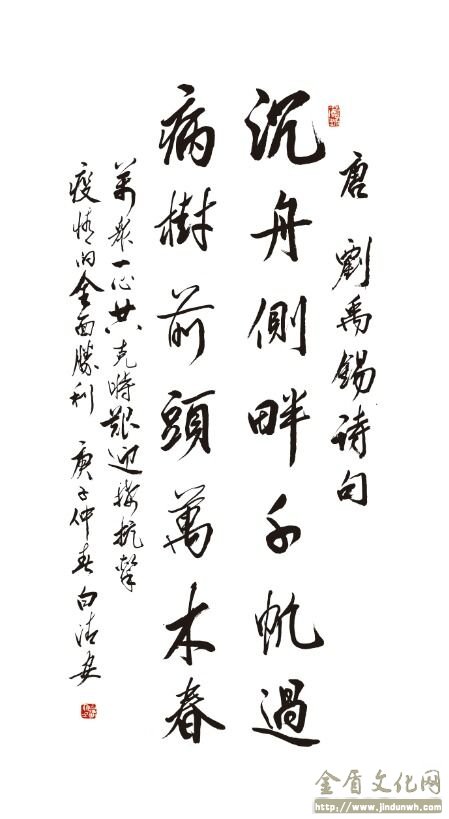 唐 劉禹錫诗句
沉舟側畔千帆過
病樹前頭萬木春
萬衆一心共克時艱迎接抗擊
疫情的全面勝利 庚子仲春白洁安
金盾文化网
http://www.jindunwh.com